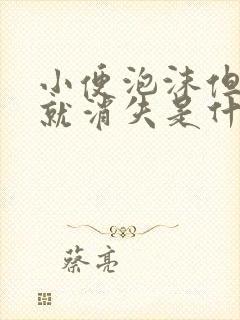 小便泡沫但
就消失是什
蔡亮